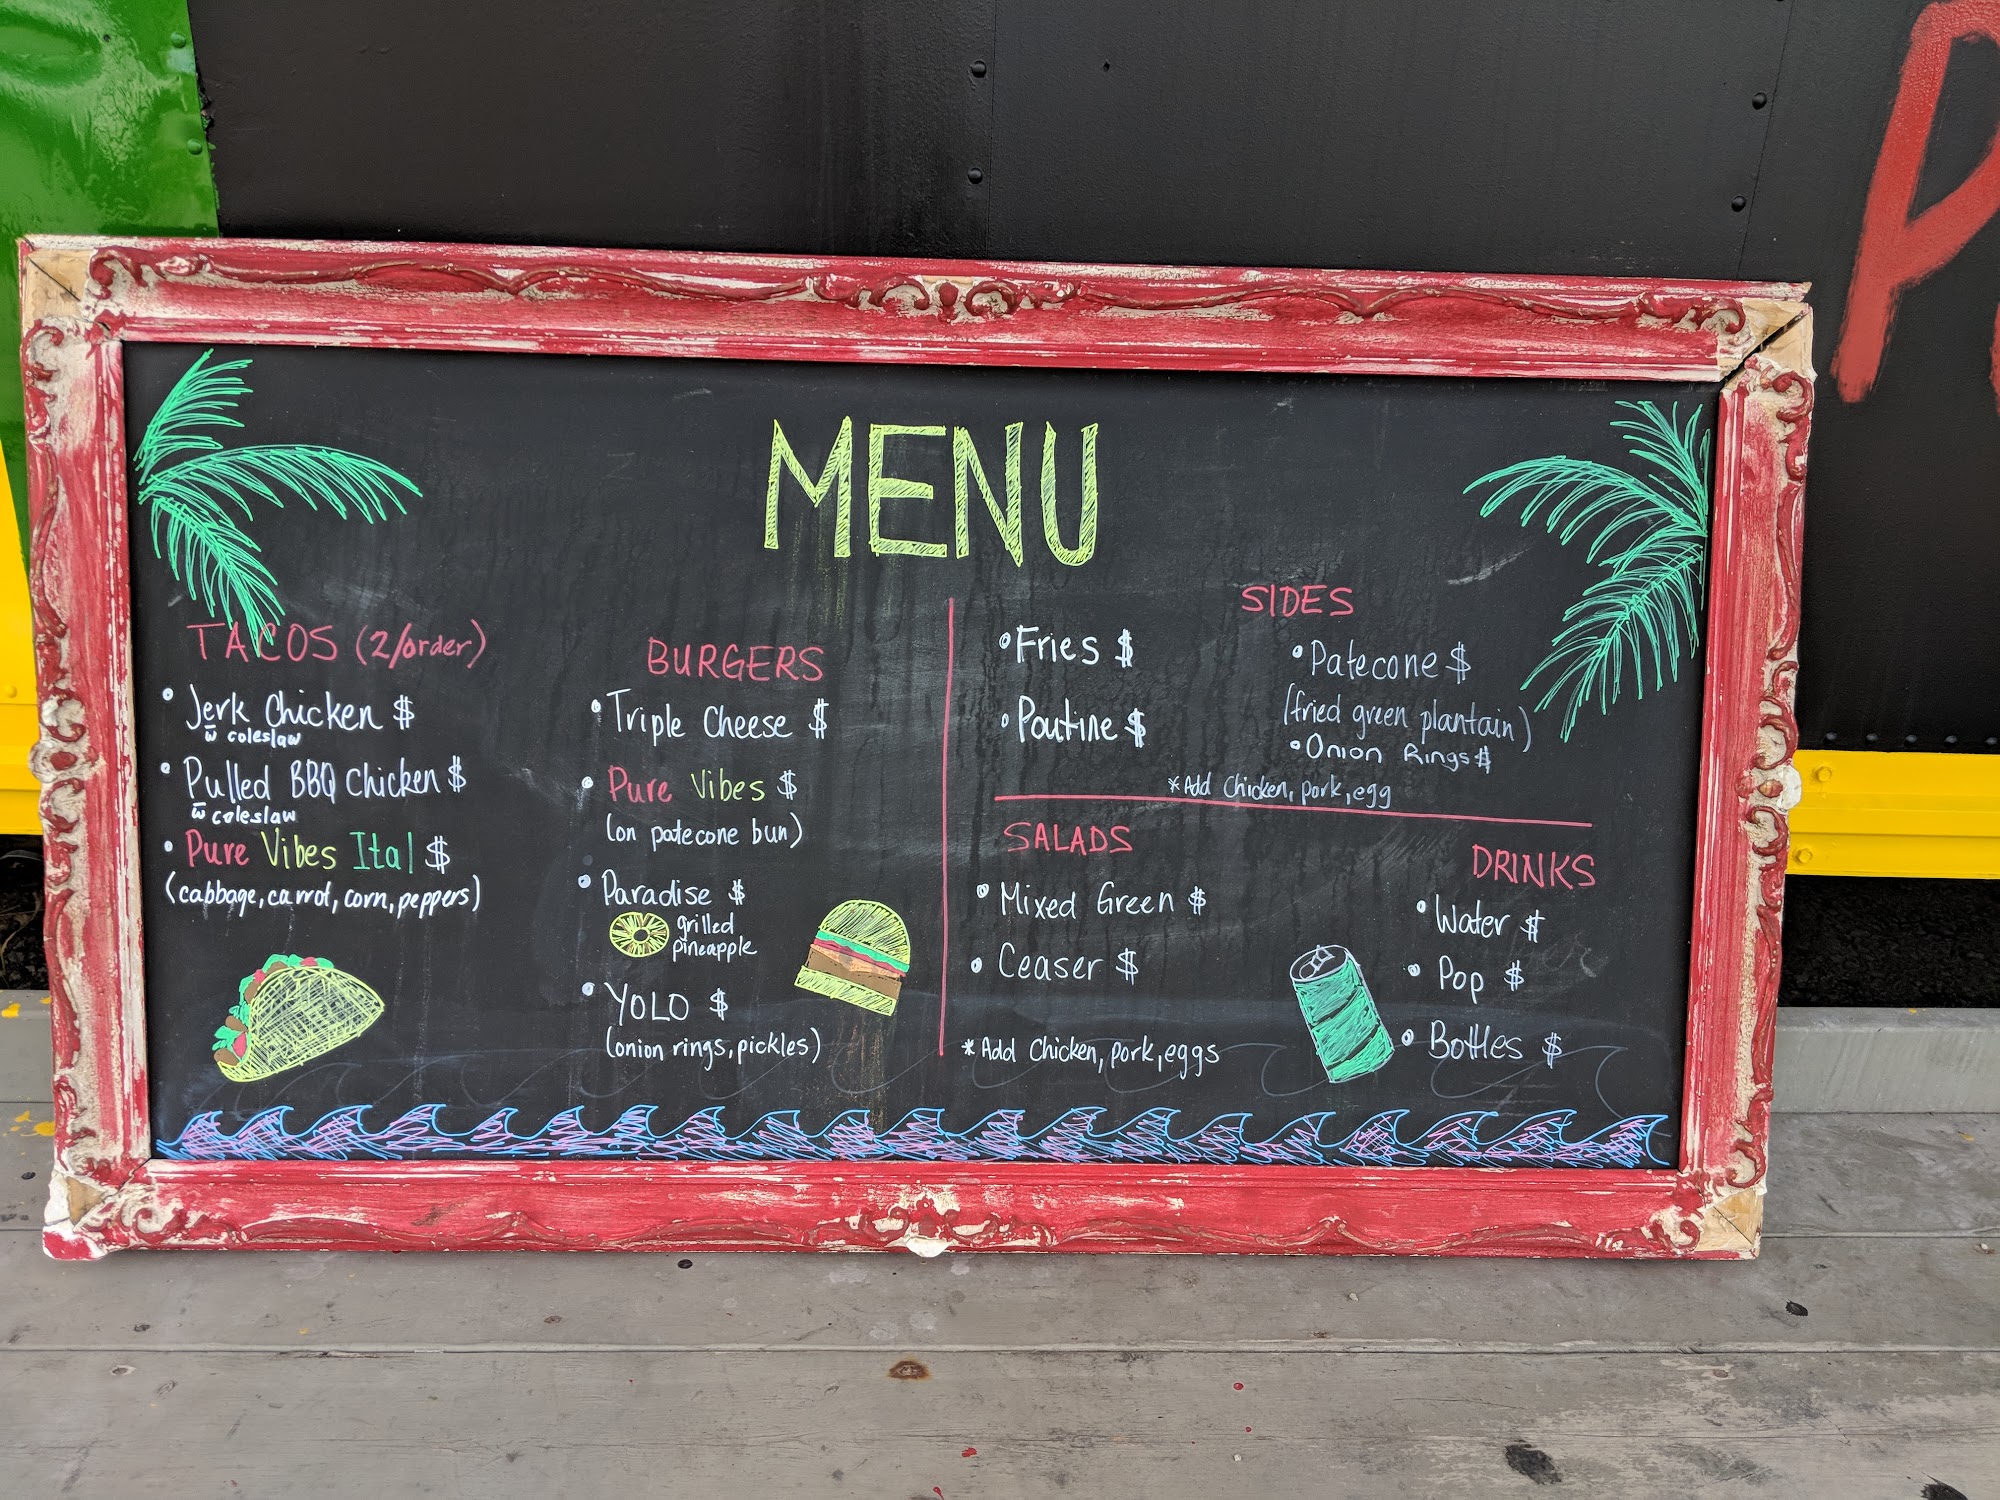 MENU
TACOS (2/order)
• Jerk Chicken $
w̄ coleslaw
• Pulled BBQ Chicken $
w̄ coleslaw
• Pure Vibes Ital $
(cabbage, carrot, corn, peppers)
BURGERS
• Triple Cheese $
• Pure Vibes $
(on patecone bun)
• Paradise $
grilled
pineapple
• YOLO $
(onion rings, pickles)
SIDES
• Fries $
• Poutine $
• Patecone $
(fried green plantain)
• Onion Rings $
*Add Chicken, pork, egg
SALADS
• Mixed Green $
• Ceaser $
*Add Chicken, pork, eggs
DRINKS
• Water $
• Pop $
• Bottles $